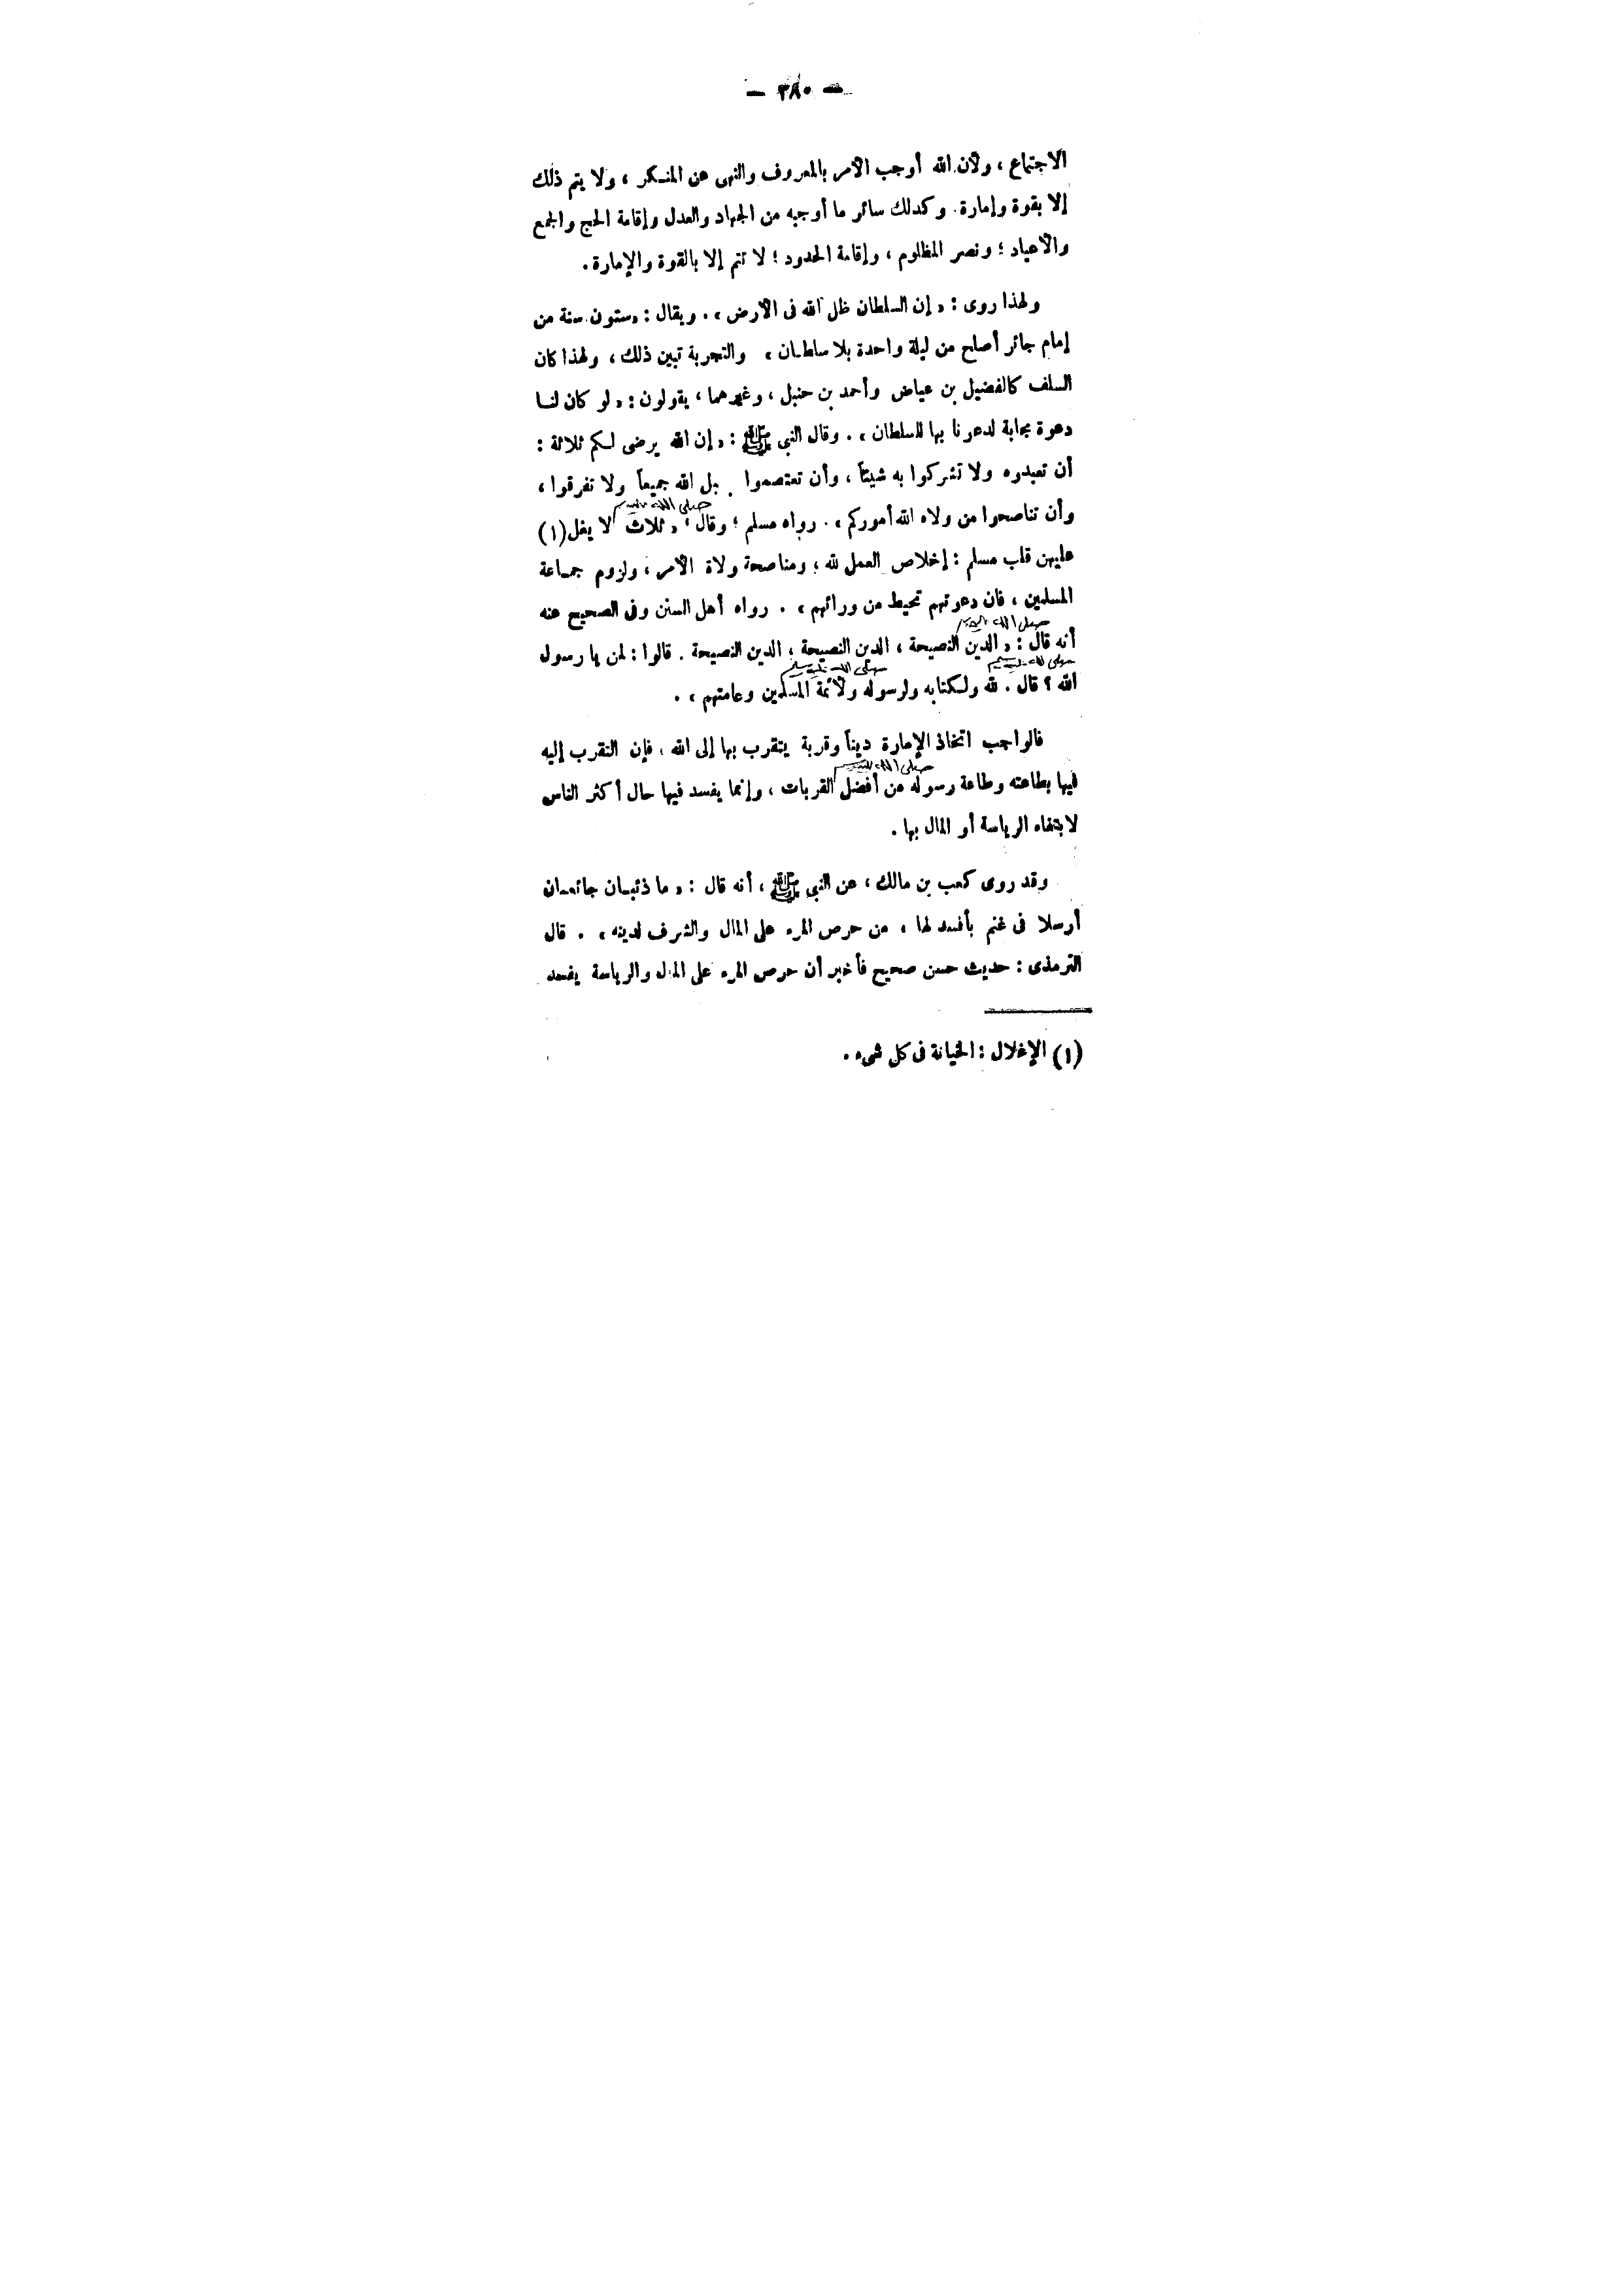 — ٣٨٠ —
الاجتماع ، ولأن الله أوجب الأمر بالمعروف والنهى عن المنكر ، ولا يتم ذلك
إلا بقوة وإمارة. وكذلك سائر ما أوجبه من الجهاد والعدل وإقامة الحج والجمع
والأعياد ؛ ونصر المظلوم ، وإقامة الحدود ؛ لا تتم إلا بالقوة والإمارة.
ولهذا روى : « إن السلطان ظل الله فى الأرض » . ويقال : «ستون سنة من
إمام جائر أصلح من ليلة واحدة بلا سلطان » والتجربة تبين ذلك ، ولهذا كان
السلف كالفضيل بن عياض وأحمد بن حنبل ، وغيرهما ، يقولون : « لو كان لنا
دعوة مجابة لدعونا بها للسلطان » . وقال النبى ﷺ : « إن الله يرضى لكم ثلاثة :
أن تعبدوه ولا تشركوا به شيئاً ، وأن تعتصموا بحبل الله جميعاً ولا تفرقوا ،
وأن تناصحوا من ولاه الله أموركم » . رواه مسلم ؛ وقال صلى الله عليه وسلم : « ثلاث لا يغل (١)
عليهن قلب مسلم : إخلاص العمل لله ؛ ومناصحة ولاة الأمر ، ولزوم جماعة
المسلمين ، فان دعوتهم تحيط من ورائهم » . رواه أهل السنن وفى الصحيح عنه
صلى الله عليه وسلم أنه قال : « الدين النصيحة ، الدين النصيحة ، الدين النصيحة . قالوا : لمن يا رسول
الله صلى الله عليه وسلم ؟ قال . لله ولكتابه ولرسوله صلى الله عليه وسلم ولأئمة المسلمين وعامتهم » .
فالواجب اتخاذ الإمارة ديناً وقربة يتقرب بها إلى الله ، فإن التقرب إليه
فيها بطاعته وطاعة رسوله صلى الله عليه وسلم من أفضل القربات ، وإنما يفسد فيها حال أكثر الناس
لابتغاء الرياسة أو المال بها .
وقد روى كعب بن مالك ، عن النبى ﷺ ، أنه قال : « ما ذئبان جائعان
أرسلا فى غنم بأفسد لها ، من حرص المرء على المال والشرف لدينه » . قال
الترمذى : حديث حسن صحيح فأخبر أن حرص المرء على المال والرياسة يفسد
(١) الإغلال : الخيانة فى كل شىء .